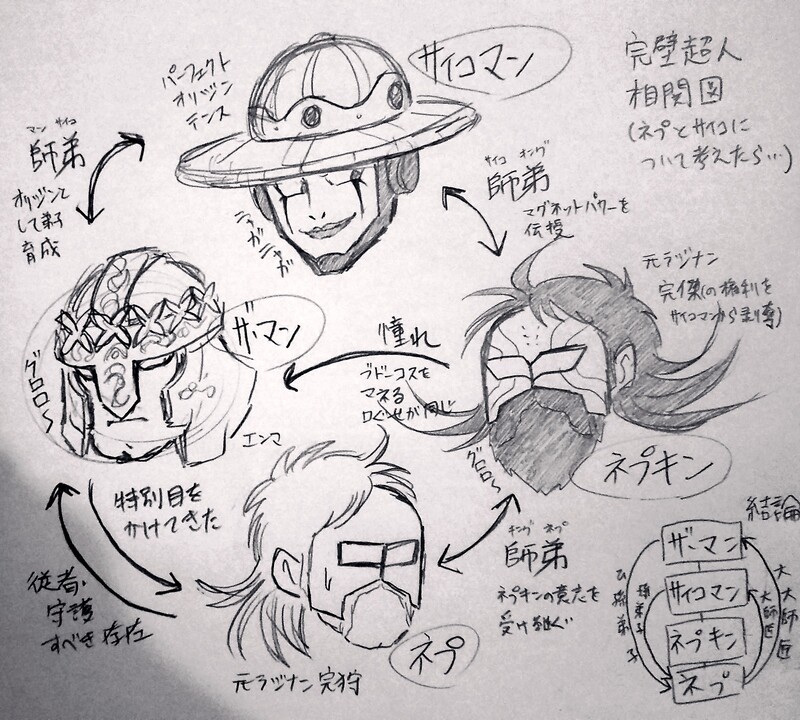 完璧超人
相関図
(ネプとサイコに
ついて考えたら…)
サイコマン
パーフェクト
オリジン
テンス
マン サイコ
師弟
オリジンと
して弟子
育成
ニャガニャガ
サイコ キング
師弟
マグネットパワーを
伝授
元ラジナン
完傑(の権利を
サイコマンから剥奪)
ザ・マン
グロロ〜
エンマ
憧れ
ブドーコスを
マネる
口ぐせが同じ
グロロ〜
ネプキン
特別目を
かけてきた
従者・
守護
すべき存在
キング ネプ
師弟
ネプキンの意志を
受け継ぐ
ネプ
元ラジナン 完狩
結論
ザ・マン
サイコマン
ネプキン
ネプ
ひ孫弟子
孫弟子
大師匠
大大師匠